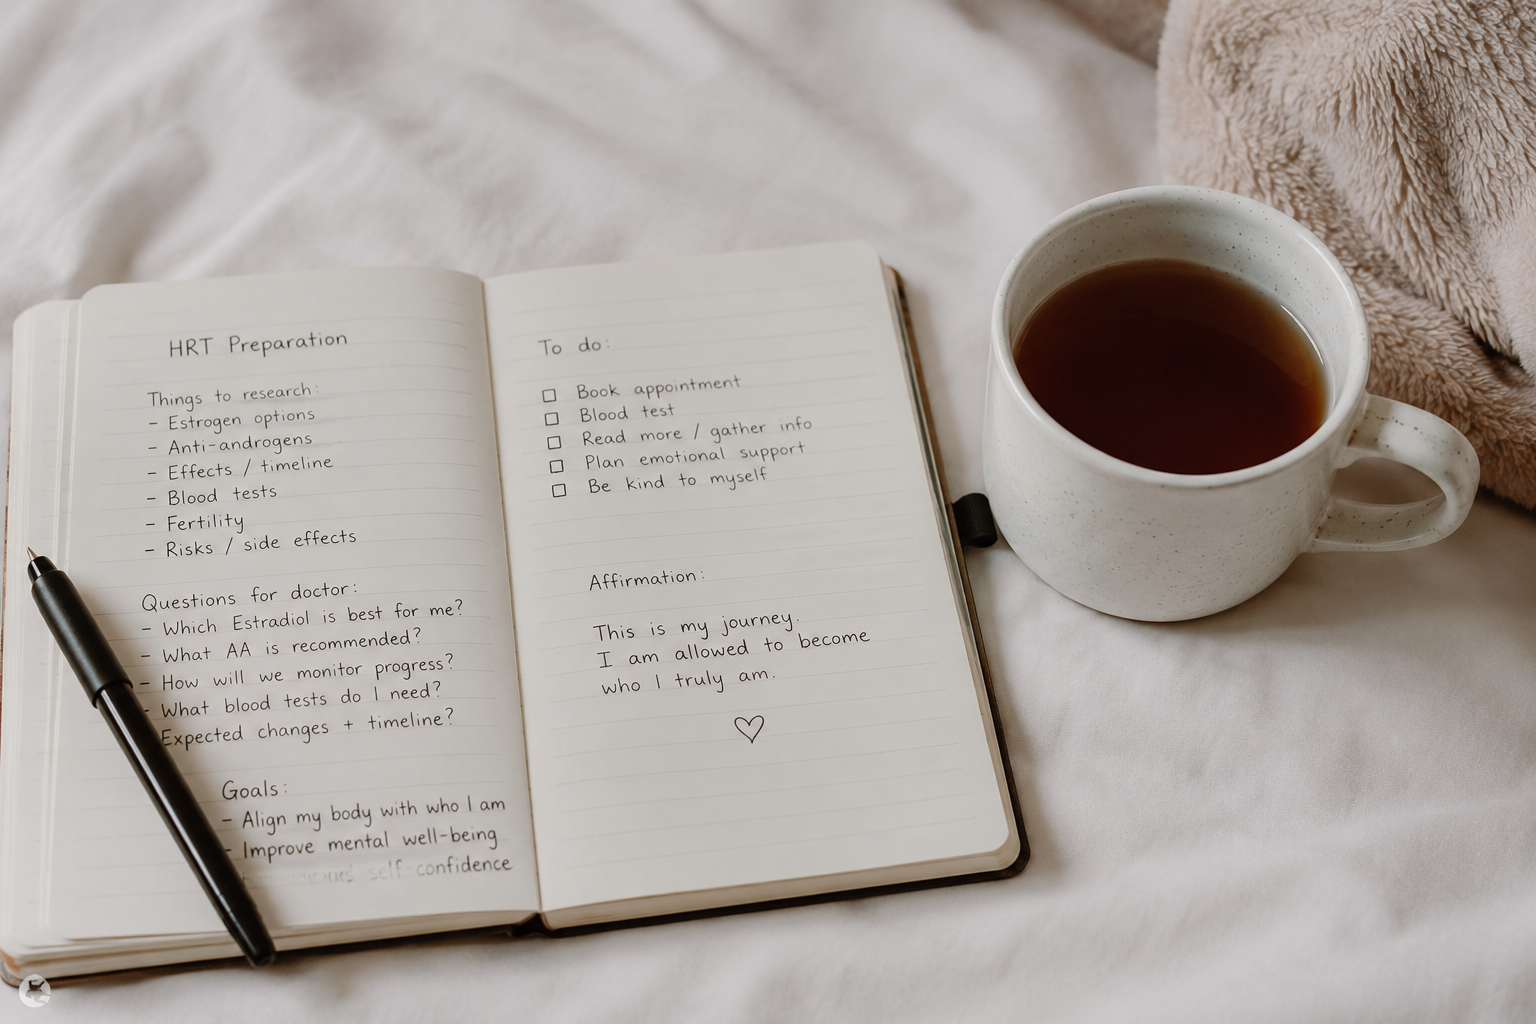 HRT Preparation
Things to research:
- Estrogen options
- Anti-androgens
- Effects / timeline
- Blood tests
- Fertility
- Risks / side effects
Questions for doctor:
- Which Estradiol is best for me?
- What AA is recommended?
- How will we monitor progress?
- What blood tests do I need?
Expected changes + timeline?
Goals:
- Align my body with who I am
- Improve mental well-being
self confidence
To do:
☐ Book appointment
☐ Blood test
☐ Read more / gather info
☐ Plan emotional support
☐ Be kind to myself
Affirmation:
This is my journey.
I am allowed to become
who I truly am.
♡